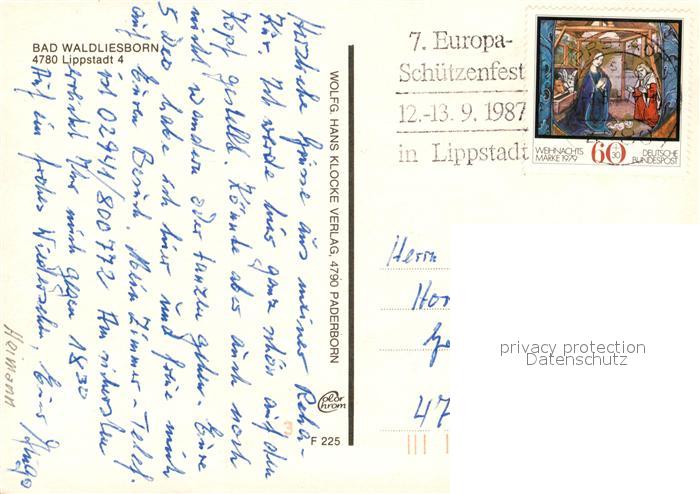 BAD WALDLIESBORN
4780 Lippstadt 4
Herzliche Grüsse aus meiner Reha-
Kur. Ich werde hier ganz schön auf den
Kopf gestellt. Könnte aber auch noch
nicht wandern oder tanzen gehen. Eure
5 habe ich hier und freue mich
auf Euren Besuch. Meine Zimmer-Telef.
ist 02941/800772 Am sichersten
erreicht Ihr mich gegen 18 30
Auf ein frohes Wiedersehen, Euer
Heimann
WOLFG. HANS KLOCKE VERLAG, 4790 PADERBORN
Color
chrom
F 225
7. Europa-
Schützenfest
12.-13. 9. 1987
in Lippstadt
WEIHNACHTS
MARKE 1979
60
+
30
DEUTSCHE
BUNDESPOST
Herrn
Hor
47
privacy protection
Datenschutz